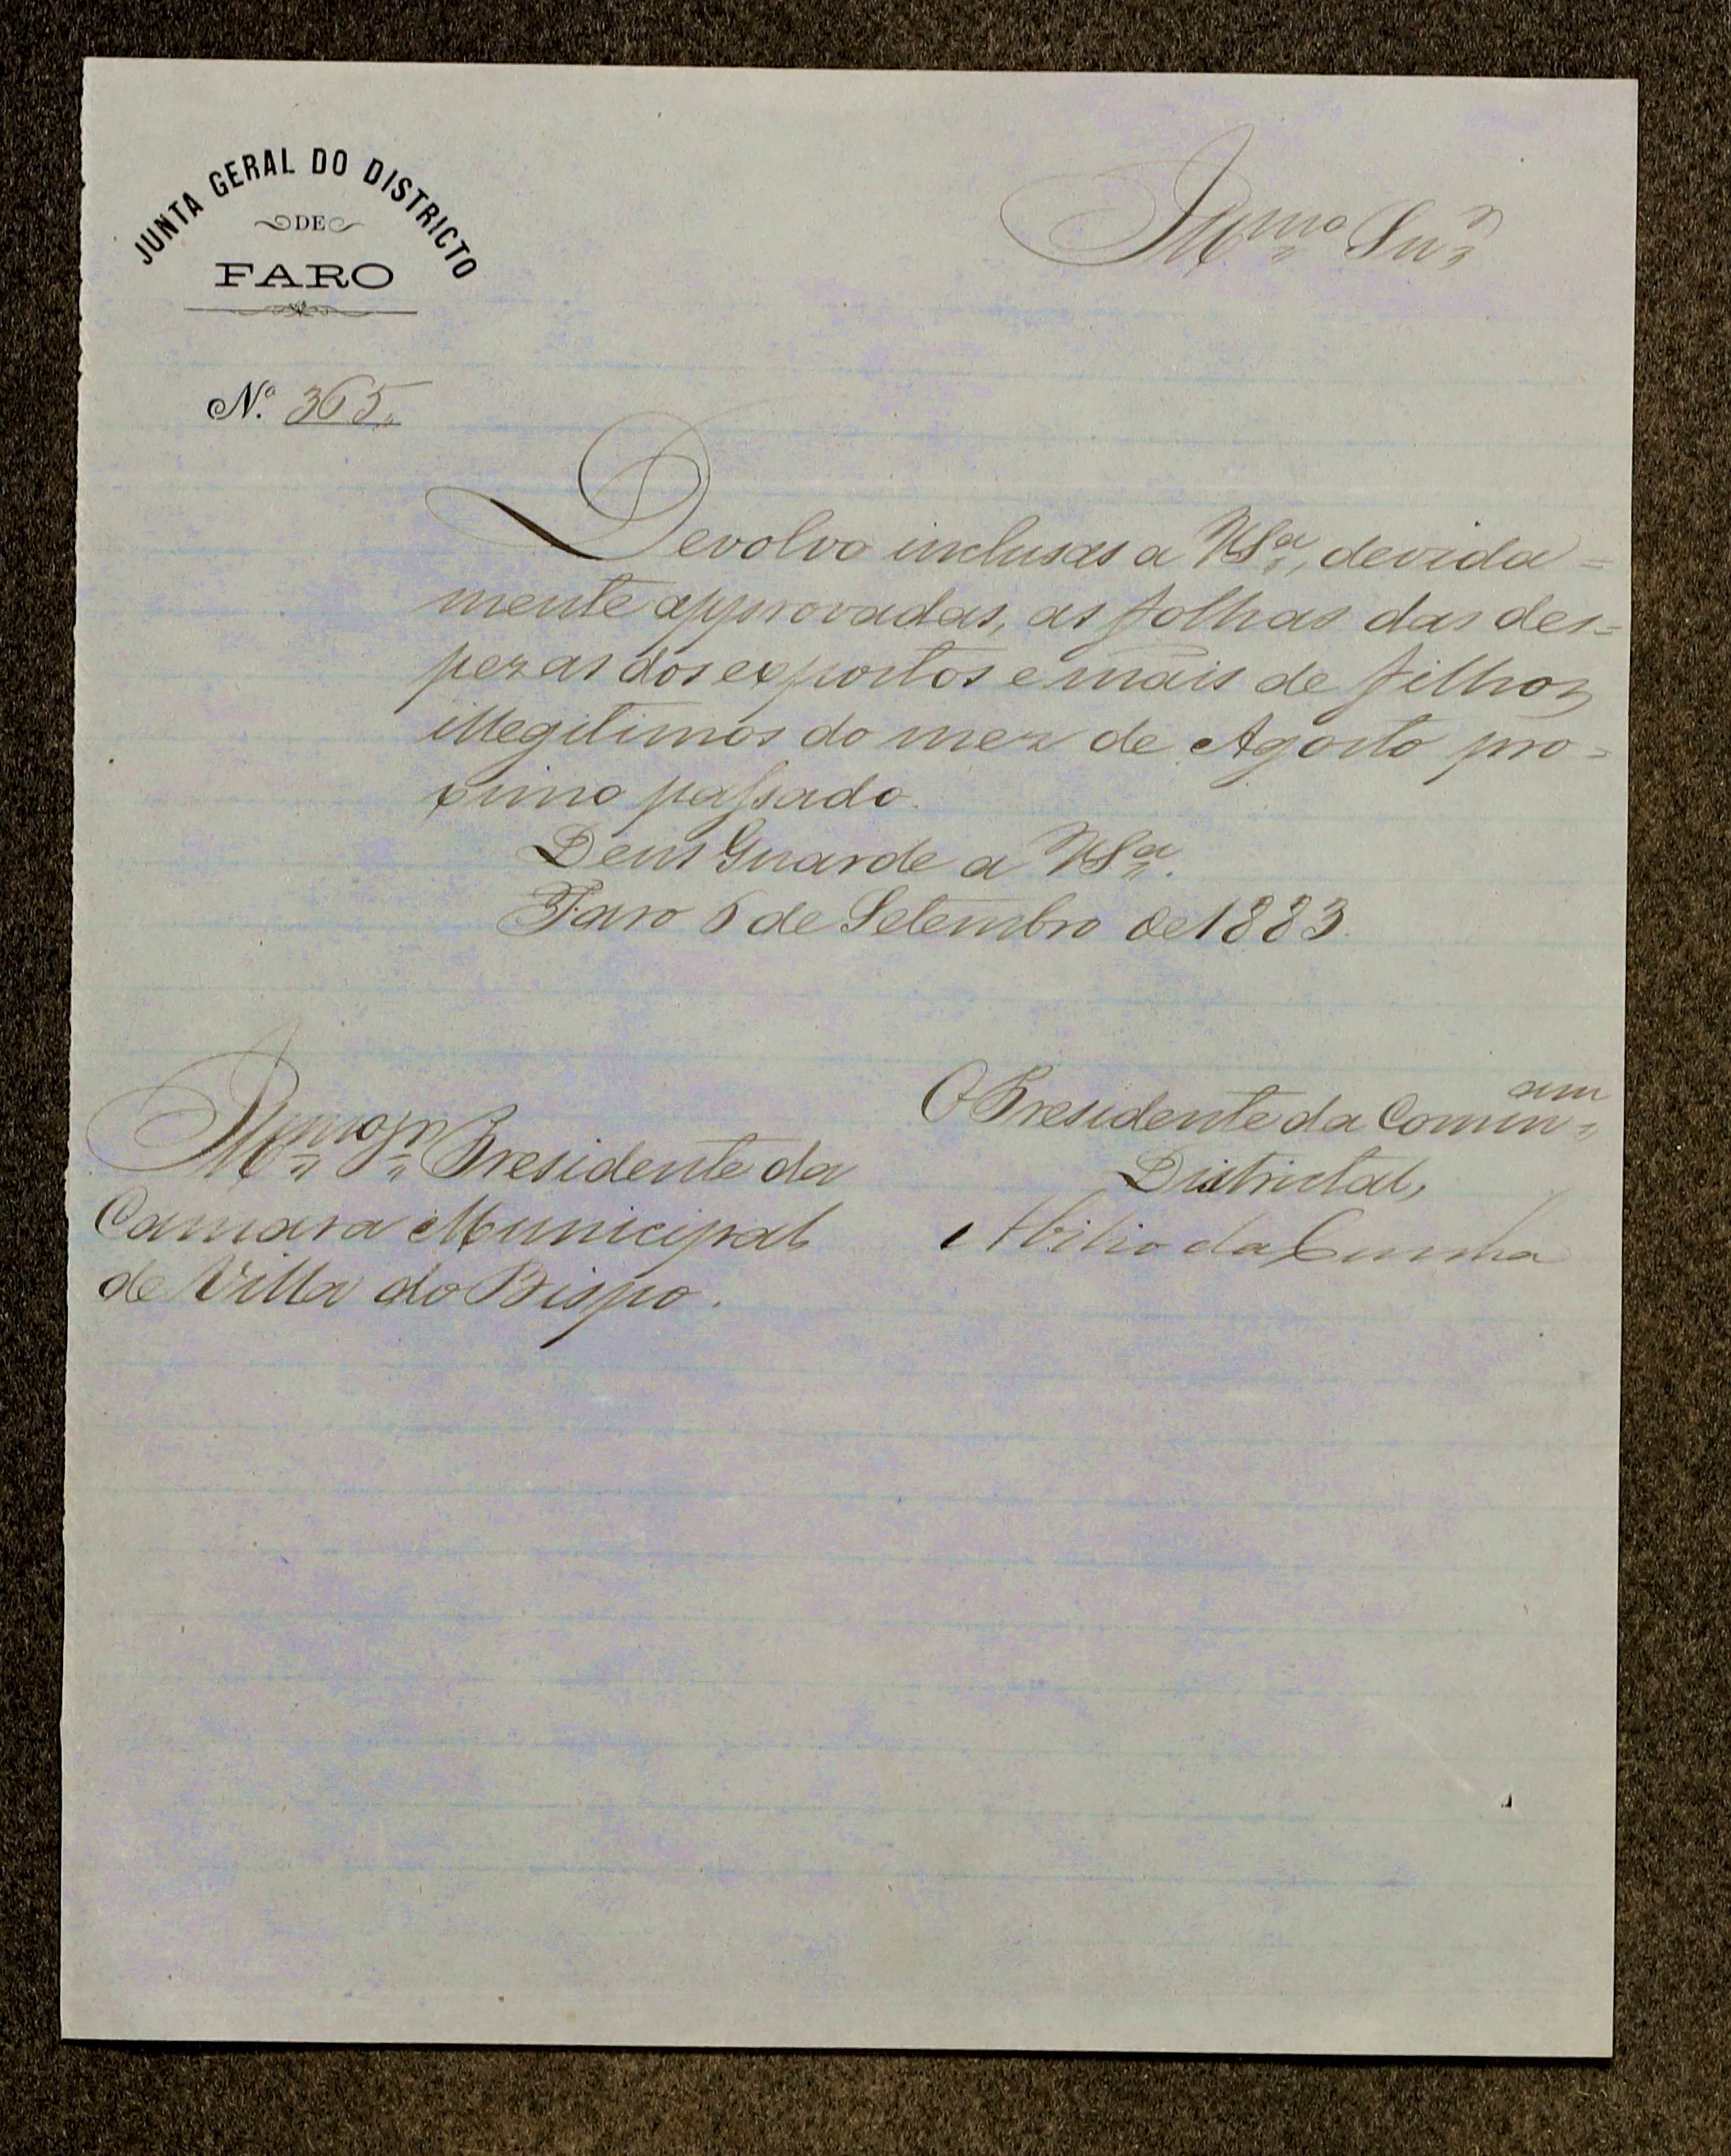 JUNTA GERAL DO DISTRICTO
DE
FARO
Illmo Snr
Nº 365
Devolvo inclusas a VSa, devida=
mente approvadas, as folhas das des=
pezas dos expostos e mais de filhos
illegitimos do mez de Agosto pro=
ximo passado.
Deus Guarde a VSa.
Faro 6 de Setembro de 1883.
O Presidente da Commam
Districtal,
Abilio da Cunha
Illmo Sr Presidente da
Camara Municipal
de Villa do Bispo.